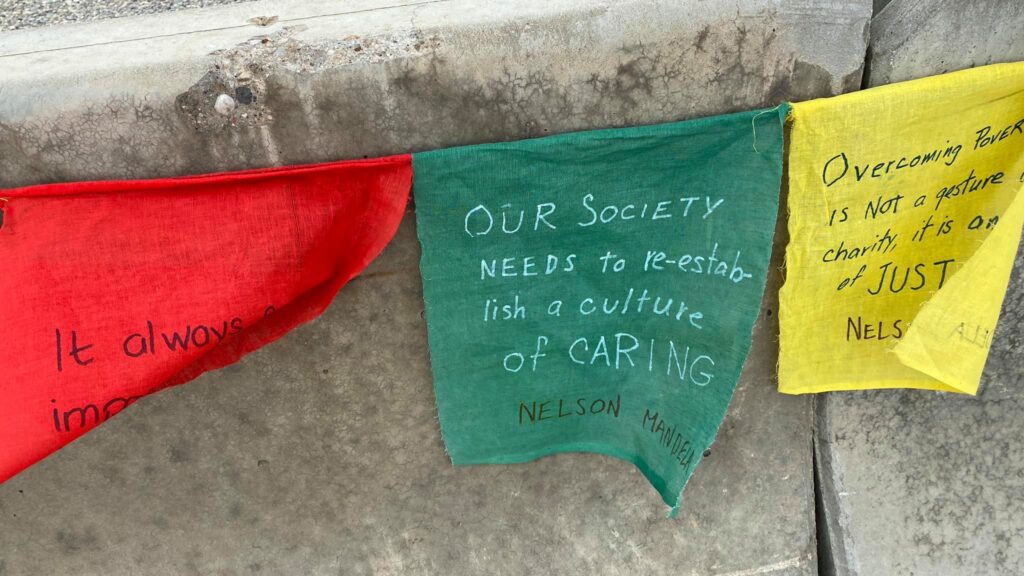 It always
OUR SOCIETY
NEEDS to re-estab-
lish a culture
of CARING
NELSON MANDELA
Overcoming
is Not a gesture
charity, it is an
of JUST